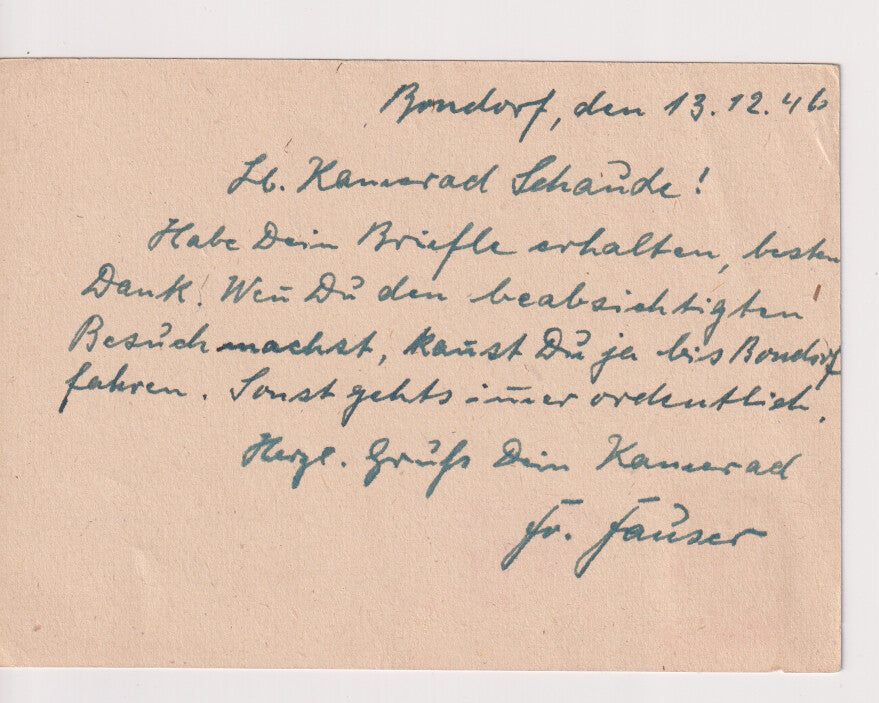 Bondorf, den 13.12.46
Lb. Kamerad Schaude!
Habe Dein Briefle erhalten, besten
Dank. Wen̄ Du den beabsichtigten
Besuch machst, kan̄st Du ja bis Bondorf
fahren. Sonst gehts im̄er ordentlich.
Herzl. Gruß Dein Kamerad
Fr. Fauser